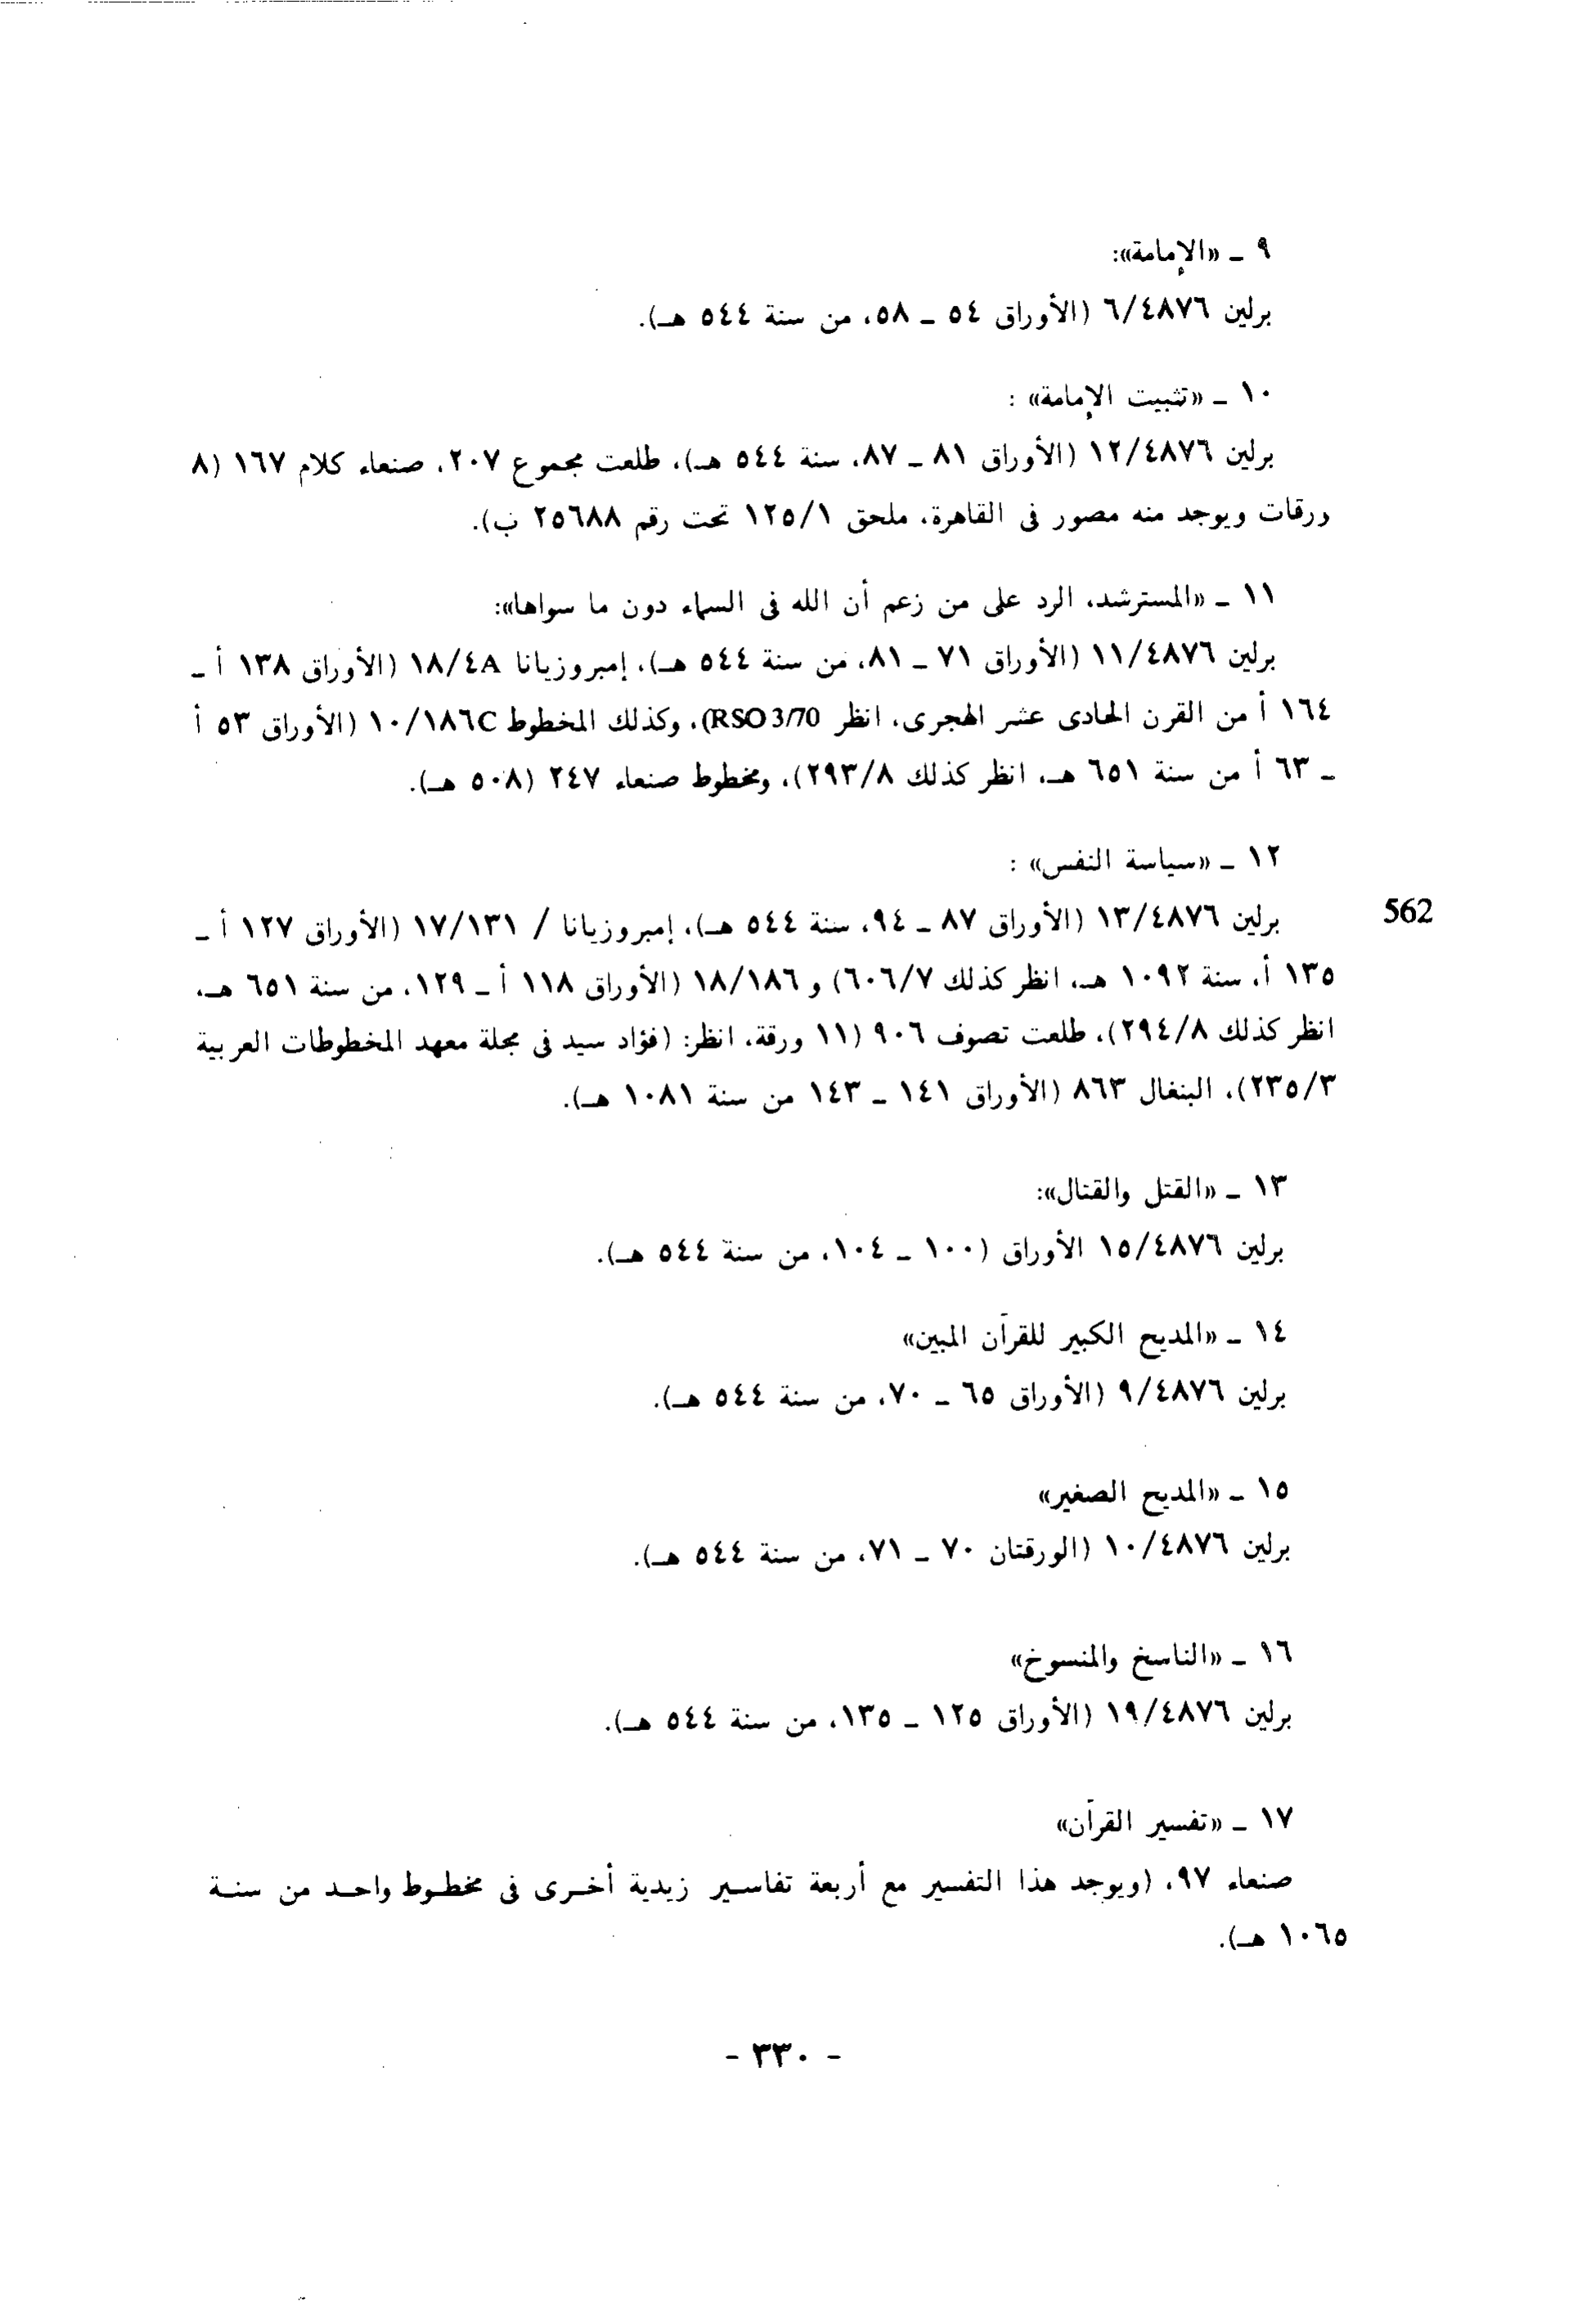 ٩ ـ «الإمامة»:
برلين ٦/٤٨٧٦ (الأوراق ٥٤ ـ ٥٨، من سنة ٥٤٤ هـ).
١٠ ـ «تثبيت الإمامة» :
برلين ١٢/٤٨٧٦ (الأوراق ٨١ ـ ٨٧، سنة ٥٤٤ هـ)، طلعت مجموع ٢٠٧، صنعاء كلام ١٦٧ (٨
ورقات ويوجد منه مصور فى القاهرة، ملحق ١٢٥/١ تحت رقم ٢٥٦٨٨ ب).
١١ ـ «المسترشد، الرد على من زعم أن الله فى السماء دون ما سواها»:
برلين ١١/٤٨٧٦ (الأوراق ٧١ ـ ٨١، من سنة ٥٤٤ هـ)، إمبروزيانا ١٨/٤A (الأوراق ١٣٨ أ ـ
١٦٤ أ من القرن الحادى عشر الهجرى، انظر RSO 3/70)، وكذلك المخطوط ١٠/١٨٦C (الأوراق ٥٣ أ
ـ ٦٣ أ من سنة ٦٥١ هـ، انظر كذلك ٢٩٣/٨)، ومخطوط صنعاء ٢٤٧ (٥٠٨ هـ).
١٢ ـ «سياسة النفس» :
562 برلين ١٣/٤٨٧٦ (الأوراق ٨٧ ـ ٩٤، سنة ٥٤٤ هـ)، إمبروزيانا / ١٧/١٣١ (الأوراق ١٢٧ أ ـ
١٣٥ أ، سنة ١٠٩٢ هـ، انظر كذلك ٦٠٦/٧) و ١٨/١٨٦ (الأوراق ١١٨ أ ـ ١٢٩، من سنة ٦٥١ هـ،
انظر كذلك ٢٩٤/٨)، طلعت تصوف ٩٠٦ (١١ ورقة، انظر: (فؤاد سيد فى مجلة معهد المخطوطات العربية
٢٣٥/٣)، البنغال ٨٦٣ (الأوراق ١٤١ ـ ١٤٣ من سنة ١٠٨١ هـ).
١٣ ـ «القتل والقتال»:
برلين ١٥/٤٨٧٦ الأوراق (١٠٠ ـ ١٠٤، من سنة ٥٤٤ هـ).
١٤ ـ «المديح الكبير للقرآن المبين»
برلين ٩/٤٨٧٦ (الأوراق ٦٥ ـ ٧٠، من سنة ٥٤٤ هـ).
١٥ ـ «المديح الصغير»
برلين ١٠/٤٨٧٦ (الورقتان ٧٠ ـ ٧١، من سنة ٥٤٤ هـ).
١٦ ـ «الناسخ والمنسوخ»
برلين ١٩/٤٨٧٦ (الأوراق ١٢٥ ـ ١٣٥، من سنة ٥٤٤ هـ).
١٧ ـ «تفسير القرآن»
صنعاء ٩٧، (ويوجد هذا التفسير مع أربعة تفاسير زيدية أخرى فى مخطوط واحد من سنة
١٠٦٥ هـ).
- ٣٣٠ -